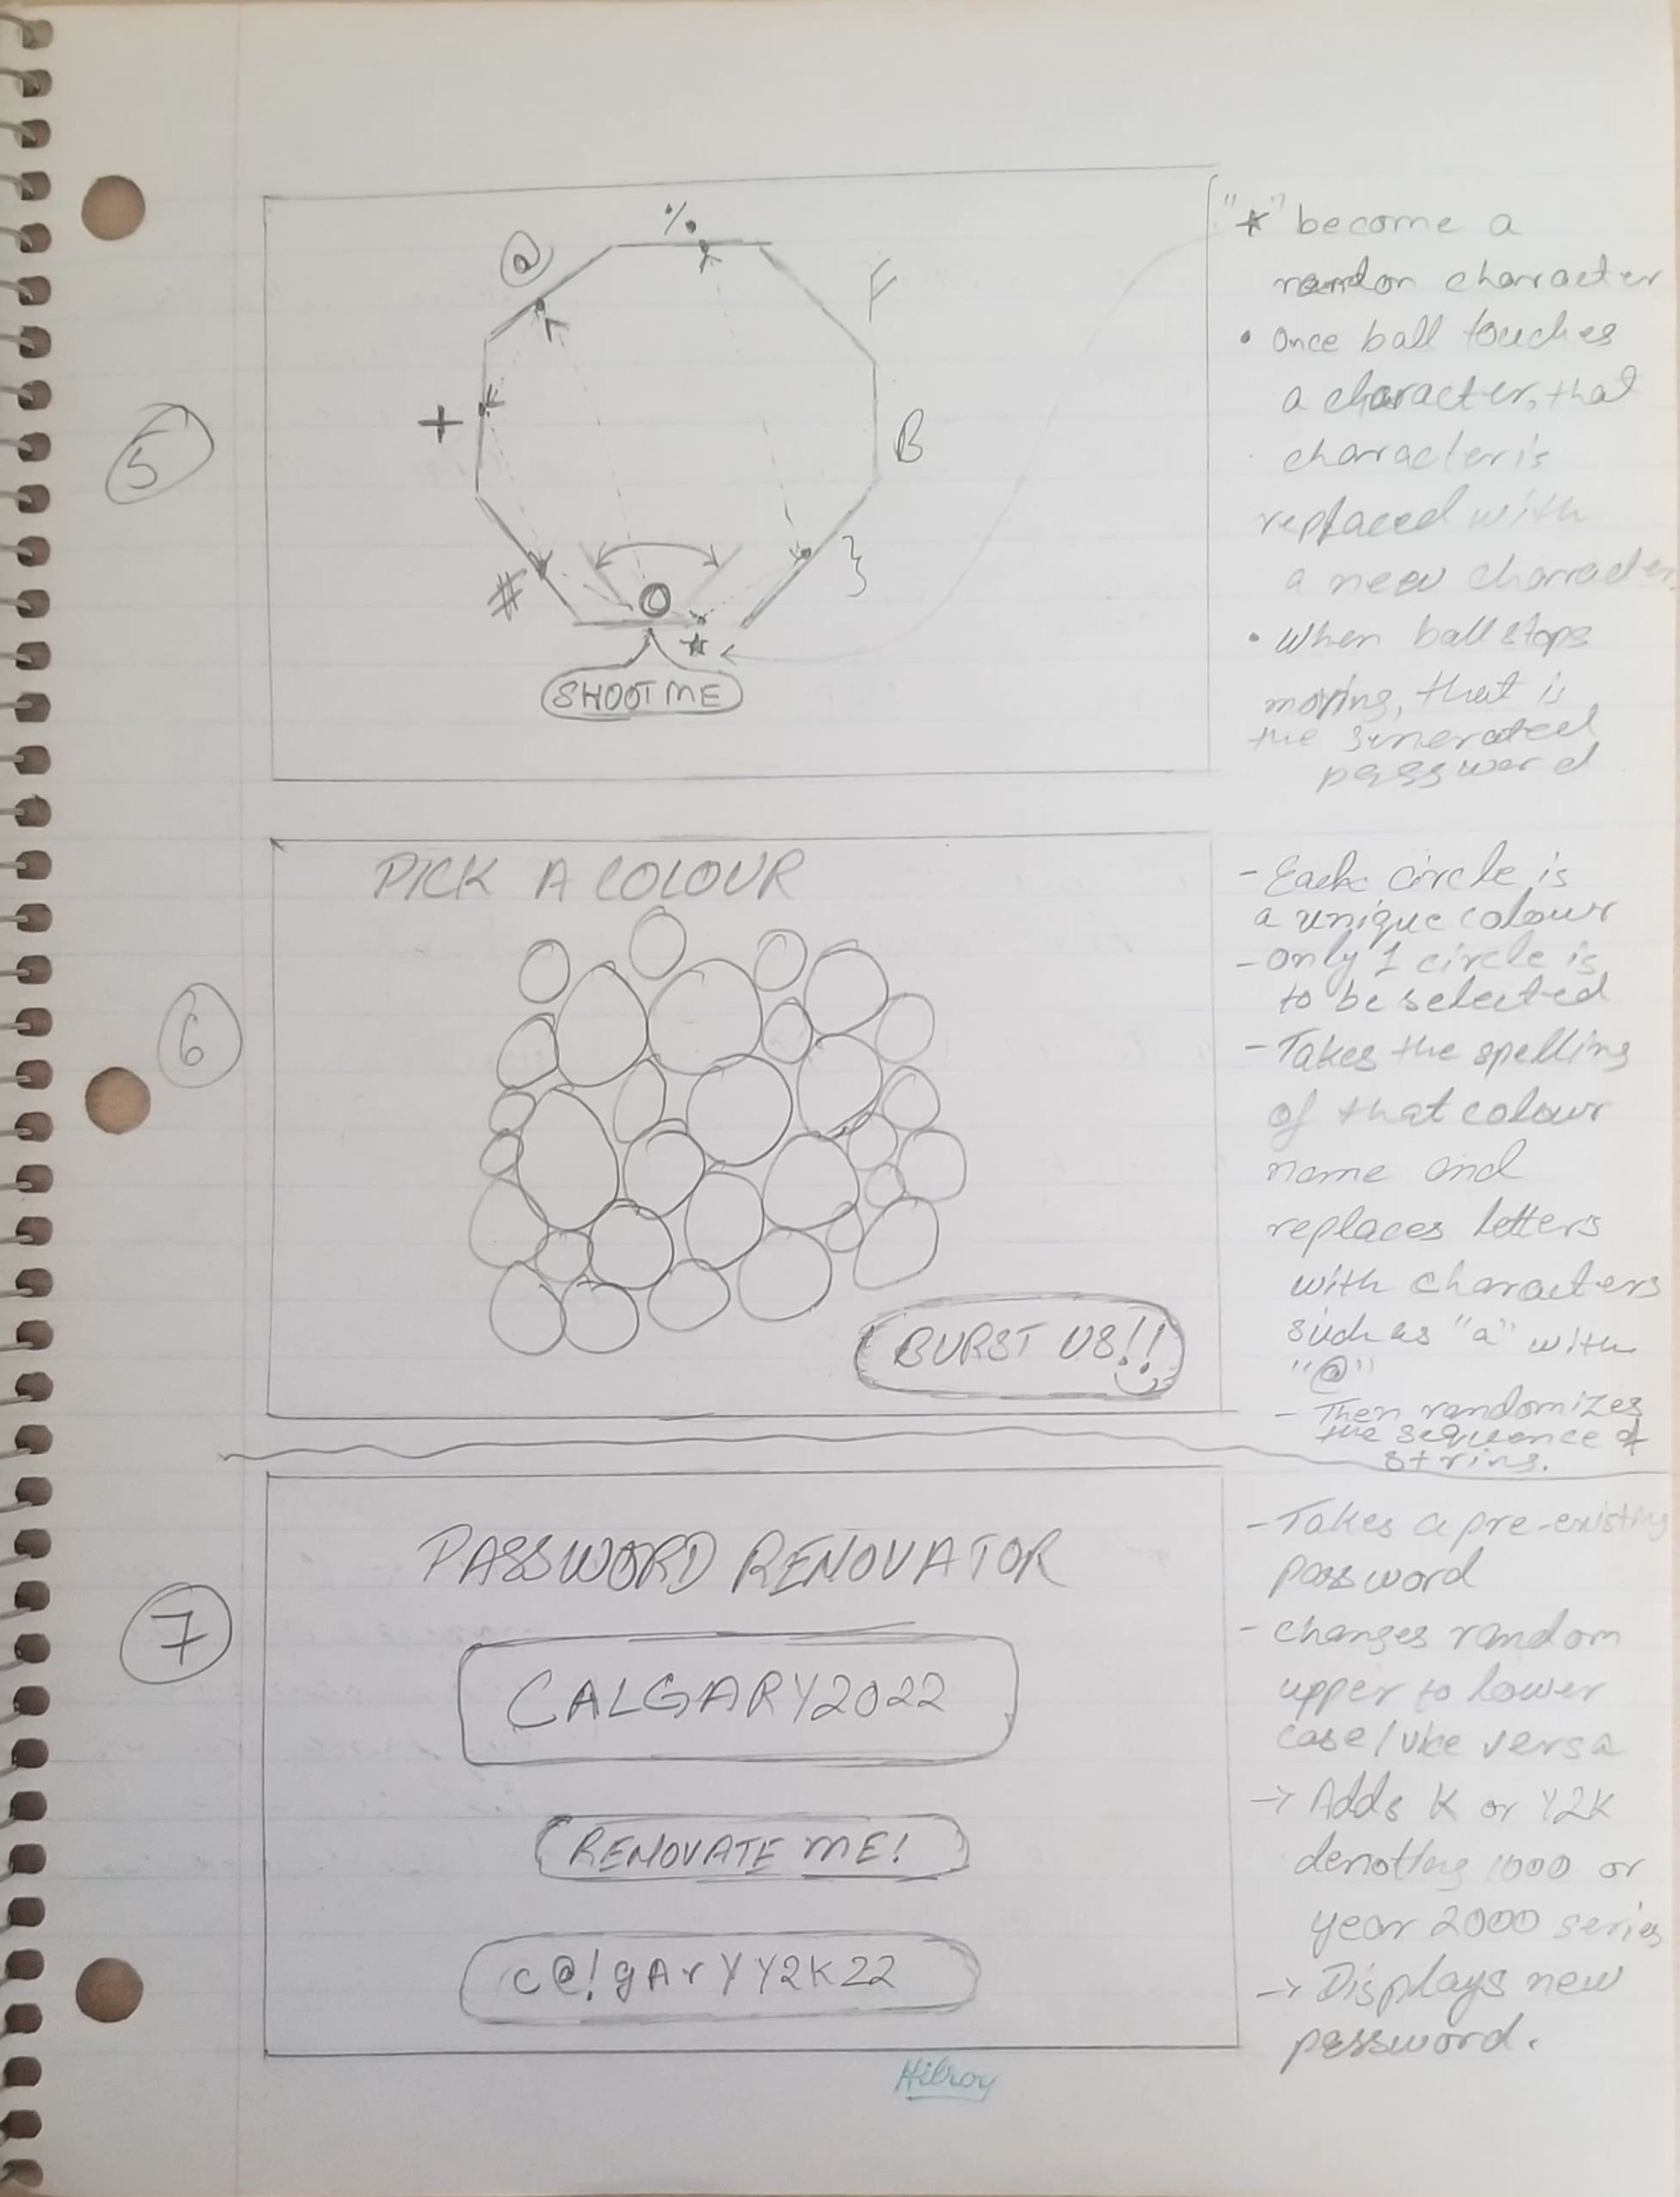 5
@
%
F
+
B
#
}
*
SHOOT ME
"*" become a
random character
• Once ball touches
a character, that
character is
replaced with
a new character
• When ball stops
moving, that is
the generated
password
6
PICK A COLOUR
BURST US!!
- Each circle is
a unique colour
- only 1 circle is
to be selected
- Takes the spelling
of that colour
name and
replaces letters
with characters
such as "a" with
"@"
- Then randomizes
the sequence of
string.
7
PASSWORD RENOVATOR
CALGARY2022
RENOVATE ME!
c@!gArYY2K22
- Takes a pre-existing
password
- changes random
upper to lower
case/vice versa
-> Adds K or Y2K
denoting 1000 or
year 2000 series
-> Displays new
password.
Hilroy